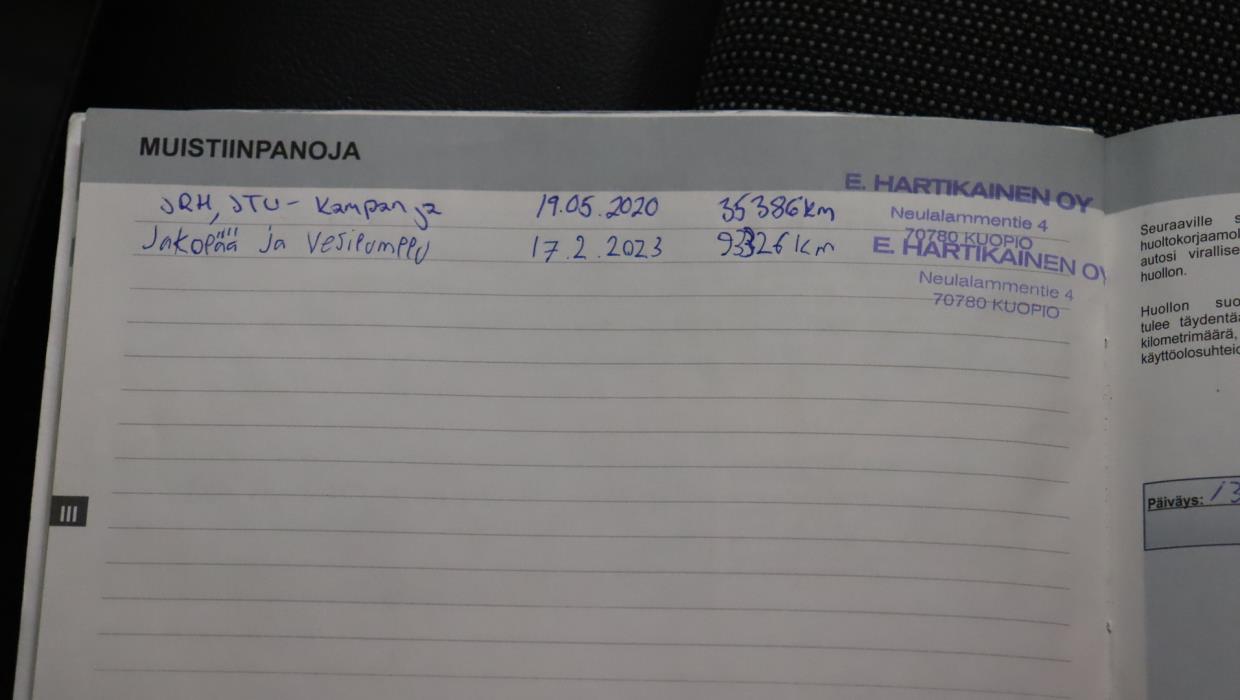 MUISTIINPANOJA
JRH, JTU - Kampanja 19.05.2020 35386km
E. HARTIKAINEN OY
Neulalammentie 4
70780 KUOPIO
Jakopää ja Vesipumppu 17.2.2023 93326 km
E. HARTIKAINEN OY
Neulalammentie 4
70780 KUOPIO
III
Seuraaville
huoltokorjaamol
autosi virallise
huollon.
Huollon suo
tulee täydentää
kilometrimäärä,
käyttöolosuhteid
Päiväys: 13